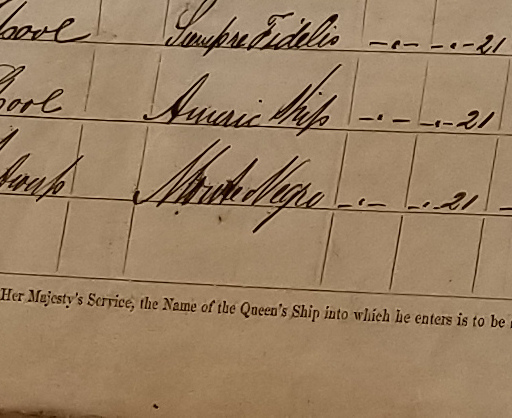 Sempre Fidelis -"- -"- 21
Americ Ship -"- -"- 21
Monte Negro -"- -"- 21
Her Majesty's Service, the Name of the Queen's Ship into which he enters is to be